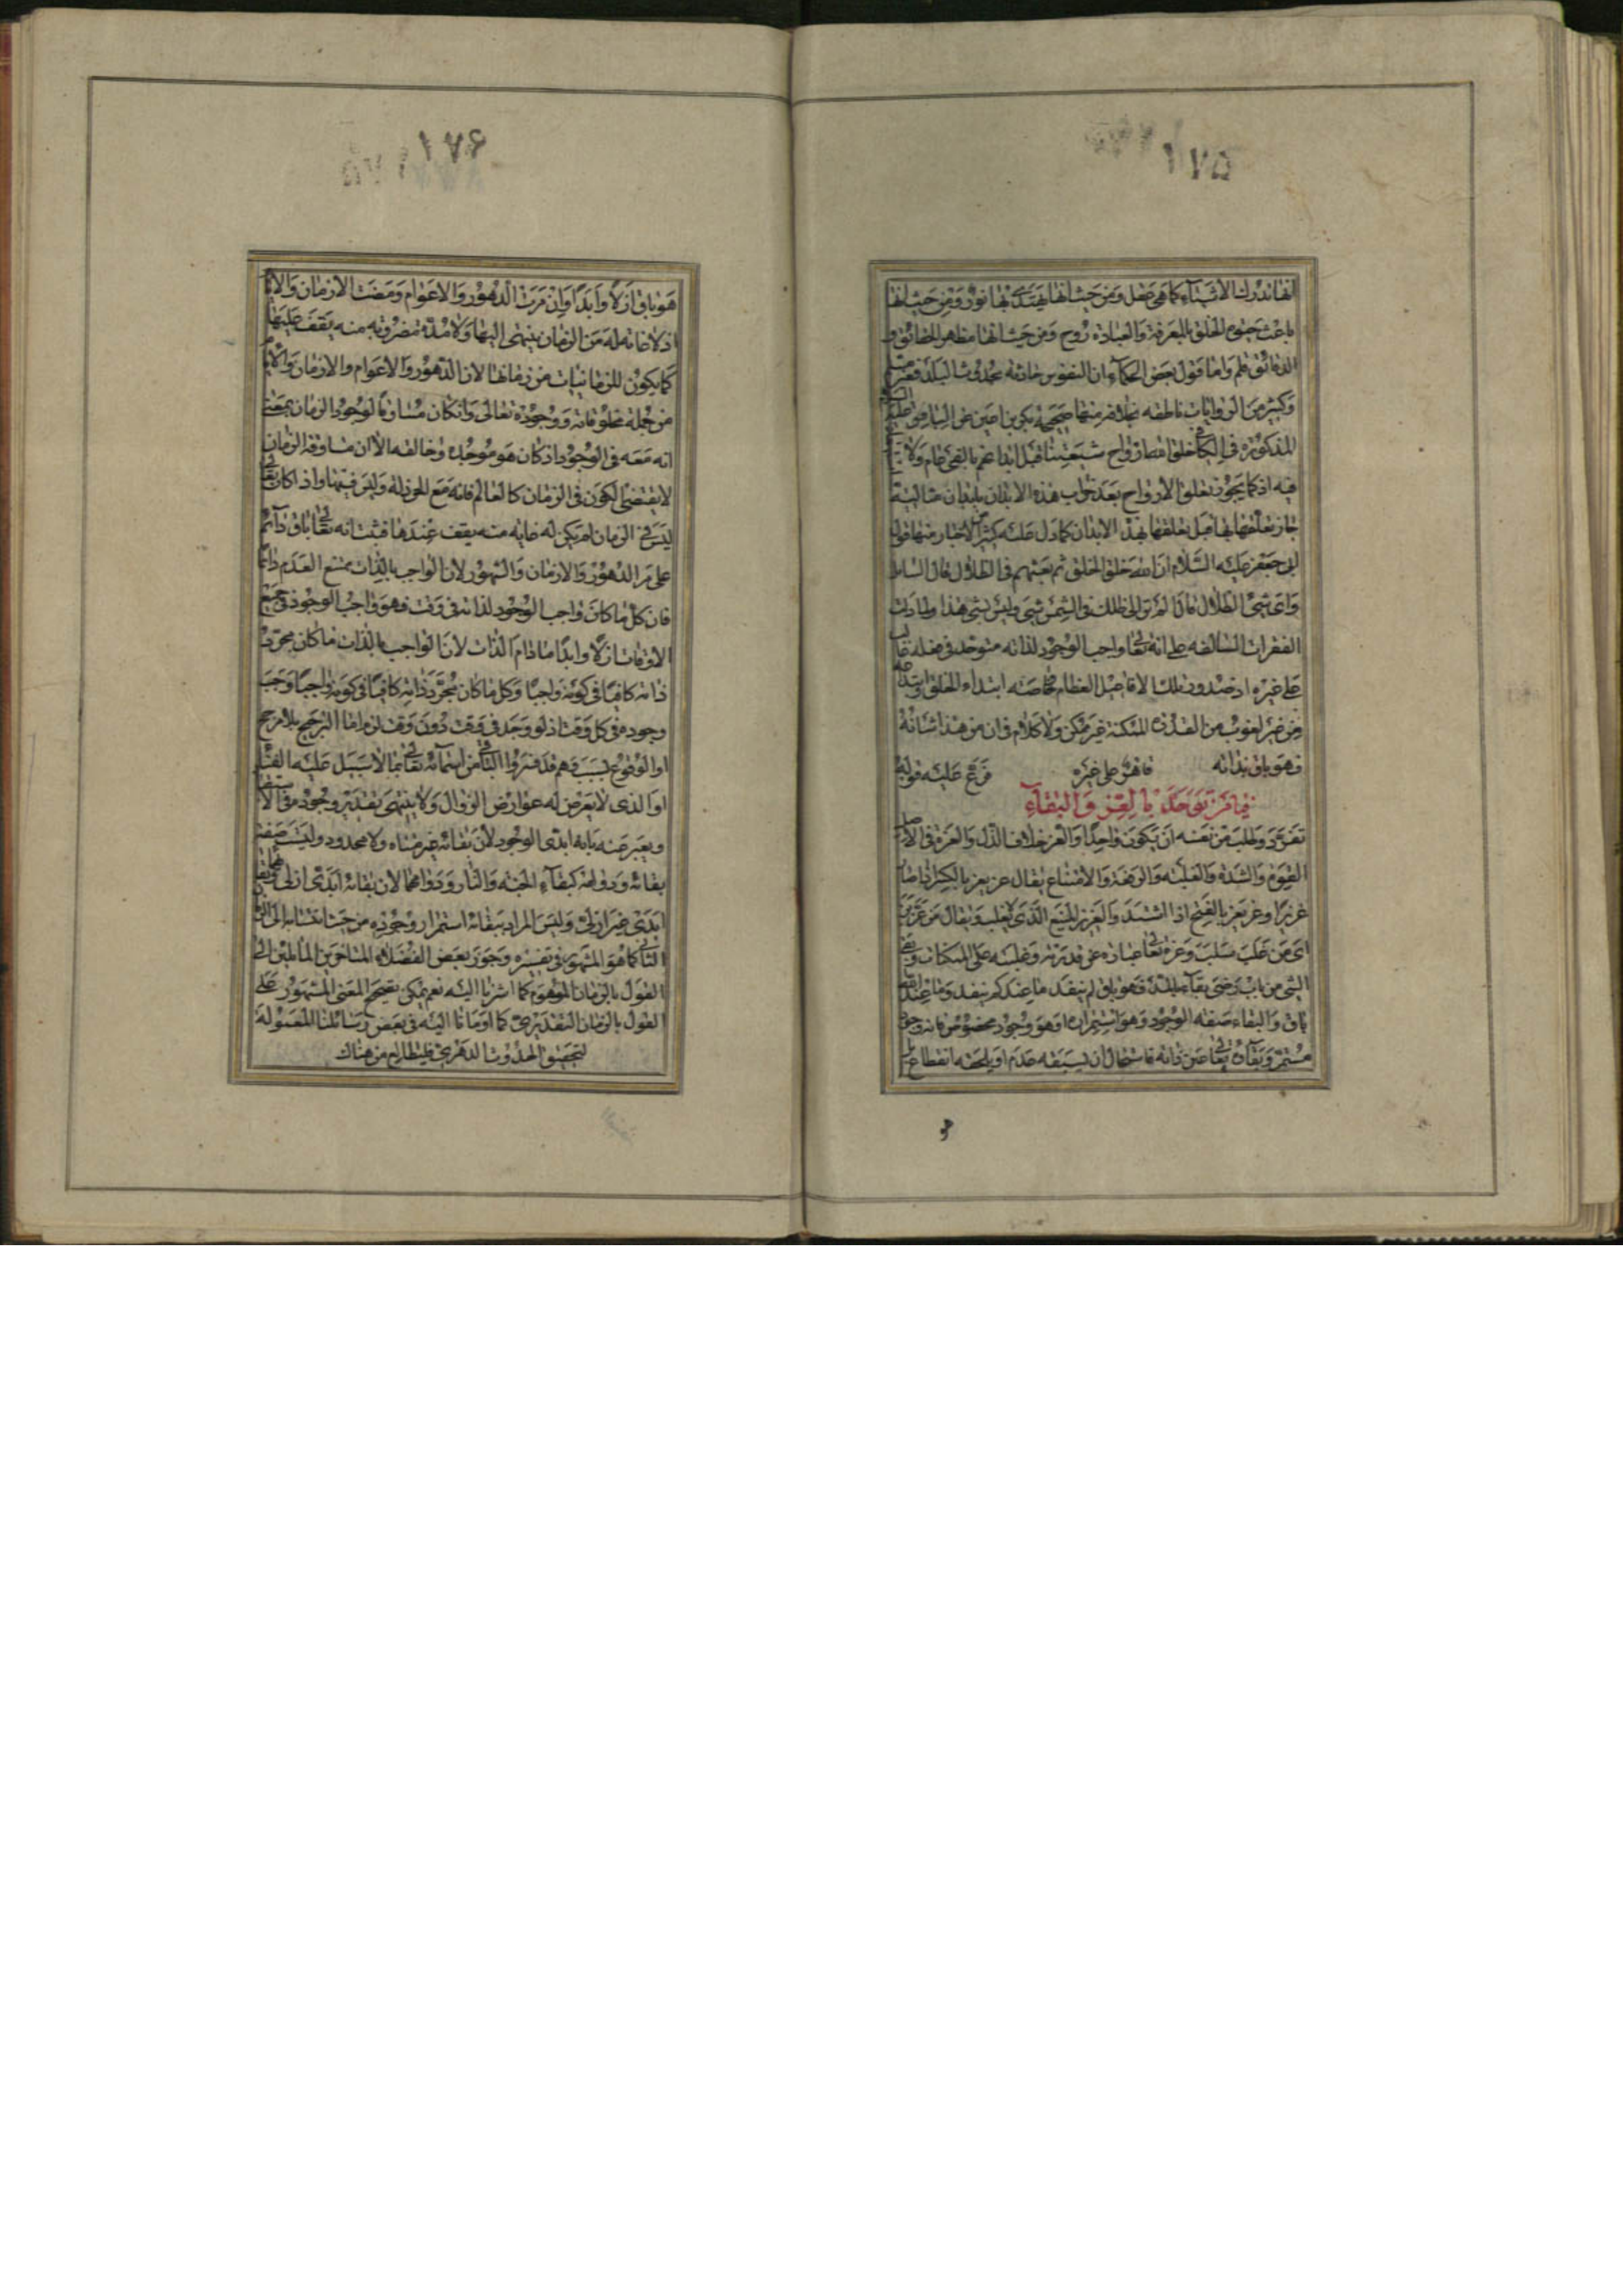 ١٧٥
انها تدرك الاشياء كما هي عقل ومن حيث انها يهتدى بها نور ومن حيث انها
باعث حيوة الخلق بالمعرفة والعبادة روح ومن حيث انها مظهر الحقائق و
الدقائق قلم واما قول بعض الحكماء ان النفوس حادثة بحدوث البدن فغير مسلم
وكثير من الروايات ناطقه بخلافه منها صحيحة بكير بن اعين عن الباقر عليه السلام
المذكورة في الكافي خلق الله ارواح شيعتنا قبل ابدانهم بالفي عام ولا
فيه اذ كما يجوز تعلق الارواح بعد خراب هذه الابدان بابدان مثالية
جاز تعلقها بها قبل تعلقها بهذه الابدان كما دل عليه كثير من الاخبار منها قول
ابى جعفر عليه السلام ان الله خلق الخلق ثم بعثهم في الظلال قال السائل
واى شئ الظلال فاذا لم تر الى ظلك في الشمس شئ وليس بشئ هذا ولما دلت
الفقرات السالفه على انه تعالى واجب الوجود لذاته متوحد في فعله غالب
على غيره اذ صدور تلك الافاعيل العظام خاصة ابتداء الخلق وابتداعه
من غير لغوب من القدرة المتمكنة غير ممكن ولا كلام في ان من هذا شانه
فهو باق بذاته قاهر على غيره فرع عليه قوله
فيا من توحد بالعز والبقاء
تفرد وطلب من نفسه ان يكون واحدا والعز خلاف الذل والعزة في الاصل
القوة والشدة والغلبة والرفعة والامتناع يقال عز يعز بالكسر اذا صار
عزيزا وعز يعز بالفتح اذا اشتد والعزيز المنيع الذى لا يغلب ويقال من عز بز
اى من غلب سلب وعزه تعالى عبارة عن قدرته وغلبته على الممكنات وبقى
الشئ من باب رضى بقاء بالمد فهو باق لم ينفد ما عندكم ينفد وما عند الله
باق والبقاء صفه الوجود وهو استمراره او هو وجود مخصوص فانه وجود
مستمر وبقاؤه تعالى عين ذاته فاستحال ان يسبقه عدم او يلحقه انقطاع بل
١٧۶
هو باق ازلا وابدا وان مرت الدهور والاعوام ومضت الازمان والايام
اذ لا غاية له من الزمان ينتهى اليها ولا مدة مضروبه منه يقف عليها
كما يكون للزمانيات من زمانها لان الدهور والاعوام والازمان والايام
من جملة مخلوقاته ووجوده تعالى وان كان مساوقا لوجود الزمان بمعنى
انه معه في الوجود اذ كان هو موجده وخالقه الا ان مساوقة الزمان
لا يقتضى الكون في الزمان كالعالم فانه مع الخردلة وليس فيها واذا كان تعالى
ليس في الزمان لم يكن له غايه منه يقف عندها فثبت انه تعالى باق دائم
على مر الدهور والازمان والشهور لان الواجب بالذات ممتنع العدم دائما
فان كل ما كان واجب الوجود لذاته في وقت فهو واجب الوجود في جميع
الاوقات ازلا وابدا ما دام الذات لان الواجب بالذات ما كان مجرد
ذاته كافيا في كونه واجبا وكل ما كان مجرد ذاته كافيا في كونه واجبا وجب
وجوده في كل وقت اذ لو وجد في وقت دون وقت لزم اما الترجيح بلا مرجح
او الوقوع بسبب وهم قد فسروا الباقى من اسمائه تعالى بما لا سبيل عليه الفناء
او الذى لا يعرض له عوارض الزوال ولا ينتهى تقدير وجوده في الاستقبال
ويعبر عنه بانه ابدى الوجود لان بقائه غير متناه ولا محدود وليست صفة
بقائه ودوامه كبقاء الجنه والنار ودوامهما لان بقائه ابدى ازلى وبقائهما
ابدى غير ازلى وليس المراد ببقائه استمرار وجوده من حيث انتسابه الى الزمان
الثانى كما هو المشهور في تفسيره وجوز بعض الفضلاء المتاخرين المائلين الى
القول بالزمان الموهوم كما اشرنا اليه نعم يمكن تصحيح المعنى المشهور على
القول بالزمان التقديرى كما اومانا اليه في بعض رسائلنا المعمولة
لتحقيق الحدوث الدهرى فليطالع من هناك